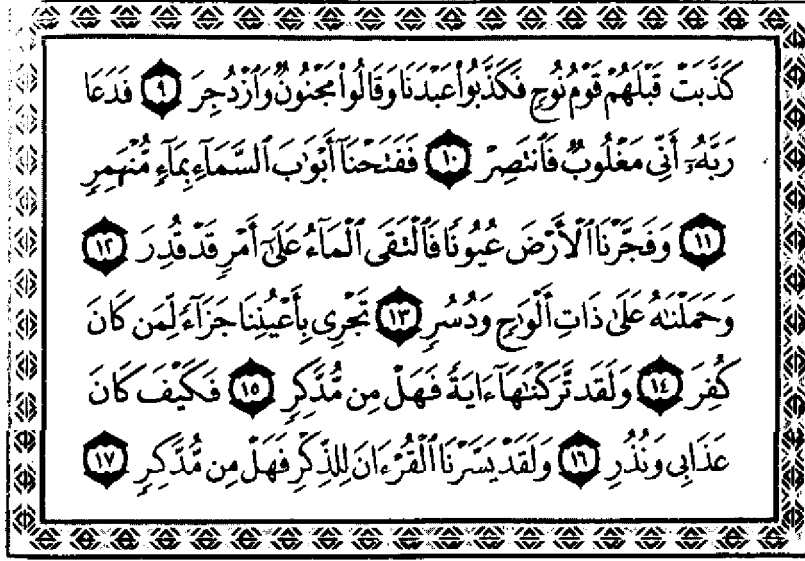 كَذَّبَتْ قَبْلَهُمْ قَوْمُ نُوحٍ فَكَذَّبُوا۟ عَبْدَنَا وَقَالُوا۟ مَجْنُونٌ وَٱزْدُجِرَ ٩ فَدَعَا
رَبَّهُۥٓ أَنِّى مَغْلُوبٌ فَٱنتَصِرْ ١٠ فَفَتَحْنَآ أَبْوَٰبَ ٱلسَّمَآءِ بِمَآءٍ مُّنْهَمِرٍ
١١ وَفَجَّرْنَا ٱلْأَرْضَ عُيُونًا فَٱلْتَقَى ٱلْمَآءُ عَلَىٰٓ أَمْرٍ قَدْ قُدِرَ ١٢
وَحَمَلْنَٰهُ عَلَىٰ ذَاتِ أَلْوَٰحٍ وَدُسُرٍ ١٣ تَجْرِى بِأَعْيُنِنَا جَزَآءً لِّمَن كَانَ
كُفِرَ ١٤ وَلَقَد تَّرَكْنَٰهَآ ءَايَةً فَهَلْ مِن مُّدَّكِرٍ ١٥ فَكَيْفَ كَانَ
عَذَابِى وَنُذُرِ ١٦ وَلَقَدْ يَسَّرْنَا ٱلْقُرْءَانَ لِلذِّكْرِ فَهَلْ مِن مُّدَّكِرٍ ١٧